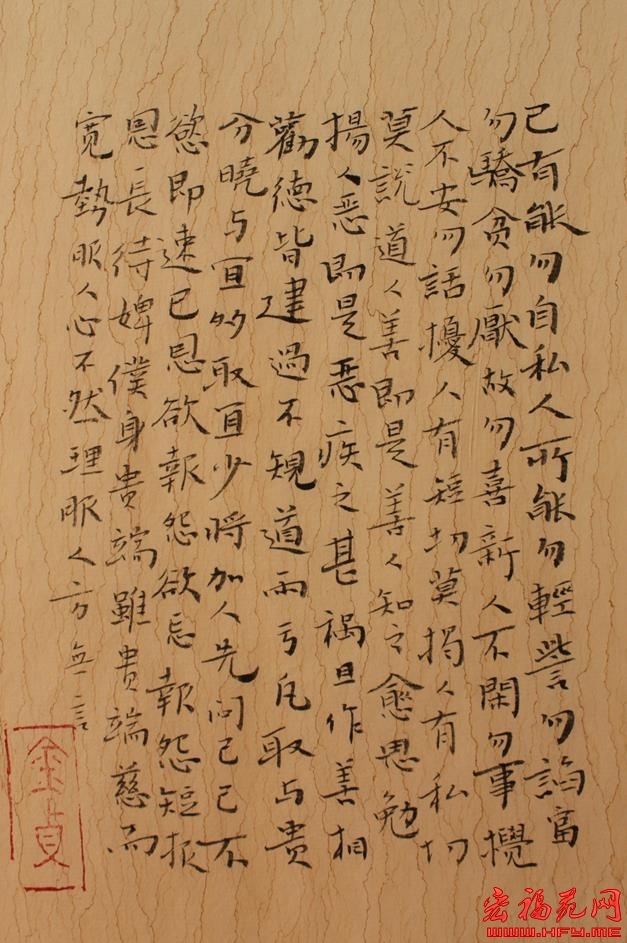 已有能勿自私人所能勿輕訾勿諂富
勿驕貪勿厭故勿喜新人不閑勿事攪
人不安勿話擾人有短切莫揭人有私切
莫說道人善即是善人知之愈思勉
揚人惡即是惡疾之甚禍且作善相
勸德皆建過不規道兩亏凡取与貴
分曉与宜多取宜少將加人先問己己不
慾即速已恩欲報怨欲忘報怨短报
恩長待婢僕身貴端雖貴端慈而
寬勢服人心不然理服人方無言
宏福苑网
WWW.HFY.ME